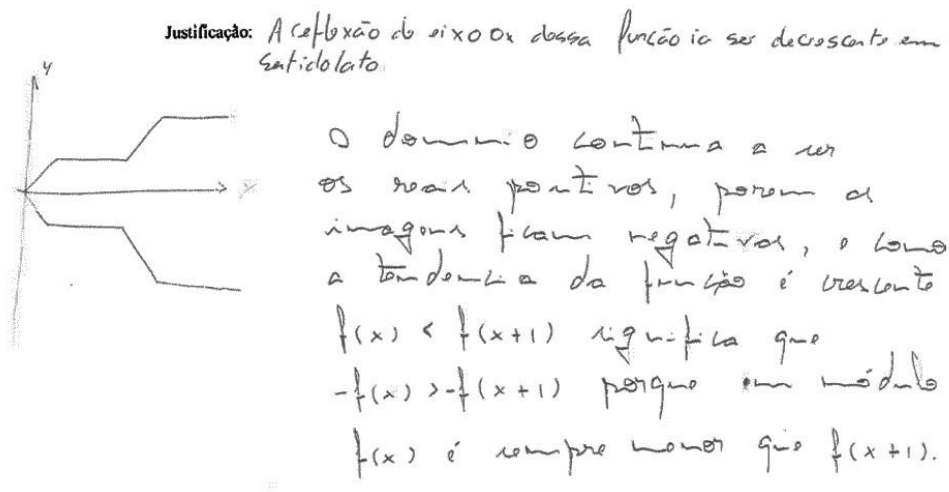 Justificação: A reflexão do eixo Ox dessa função ia ser decrescente em
sentido lato.
y
x
O dominio continua a ser
os reais positivos, porem as
imagens ficam negativas, e como
a tendencia da função é crescente
f(x) < f(x+1) significa que
-f(x) > -f(x+1) porque em módulo
f(x) é sempre menor que f(x+1).